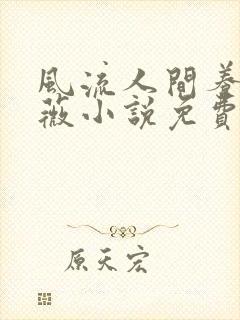 風流人間養
薇小說免費
原天宏